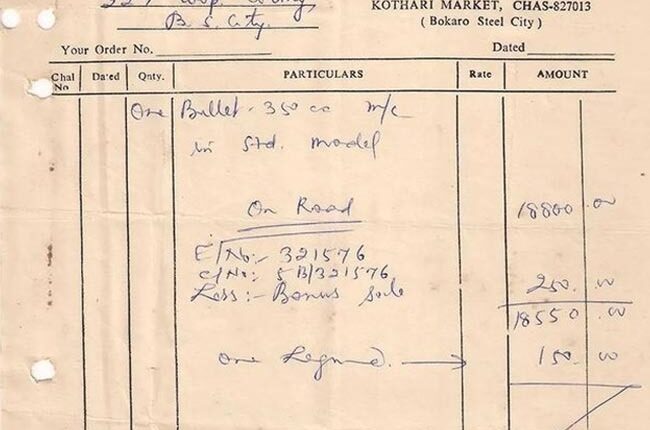 KOTHARI MARKET, CHAS-827013
B. S. City.
( Bokaro Steel City )
Your Order No. Dated
Chal No Dated Qnty. PARTICULARS Rate AMOUNT
One Bullet - 350 cc m/c
in Std. model
On Road 18800 .00
E/No:- 321576
C/No:- 5B/321576
Less:- Bonus sale 250 .00
18550 .00
One Legguard. → 150 .00